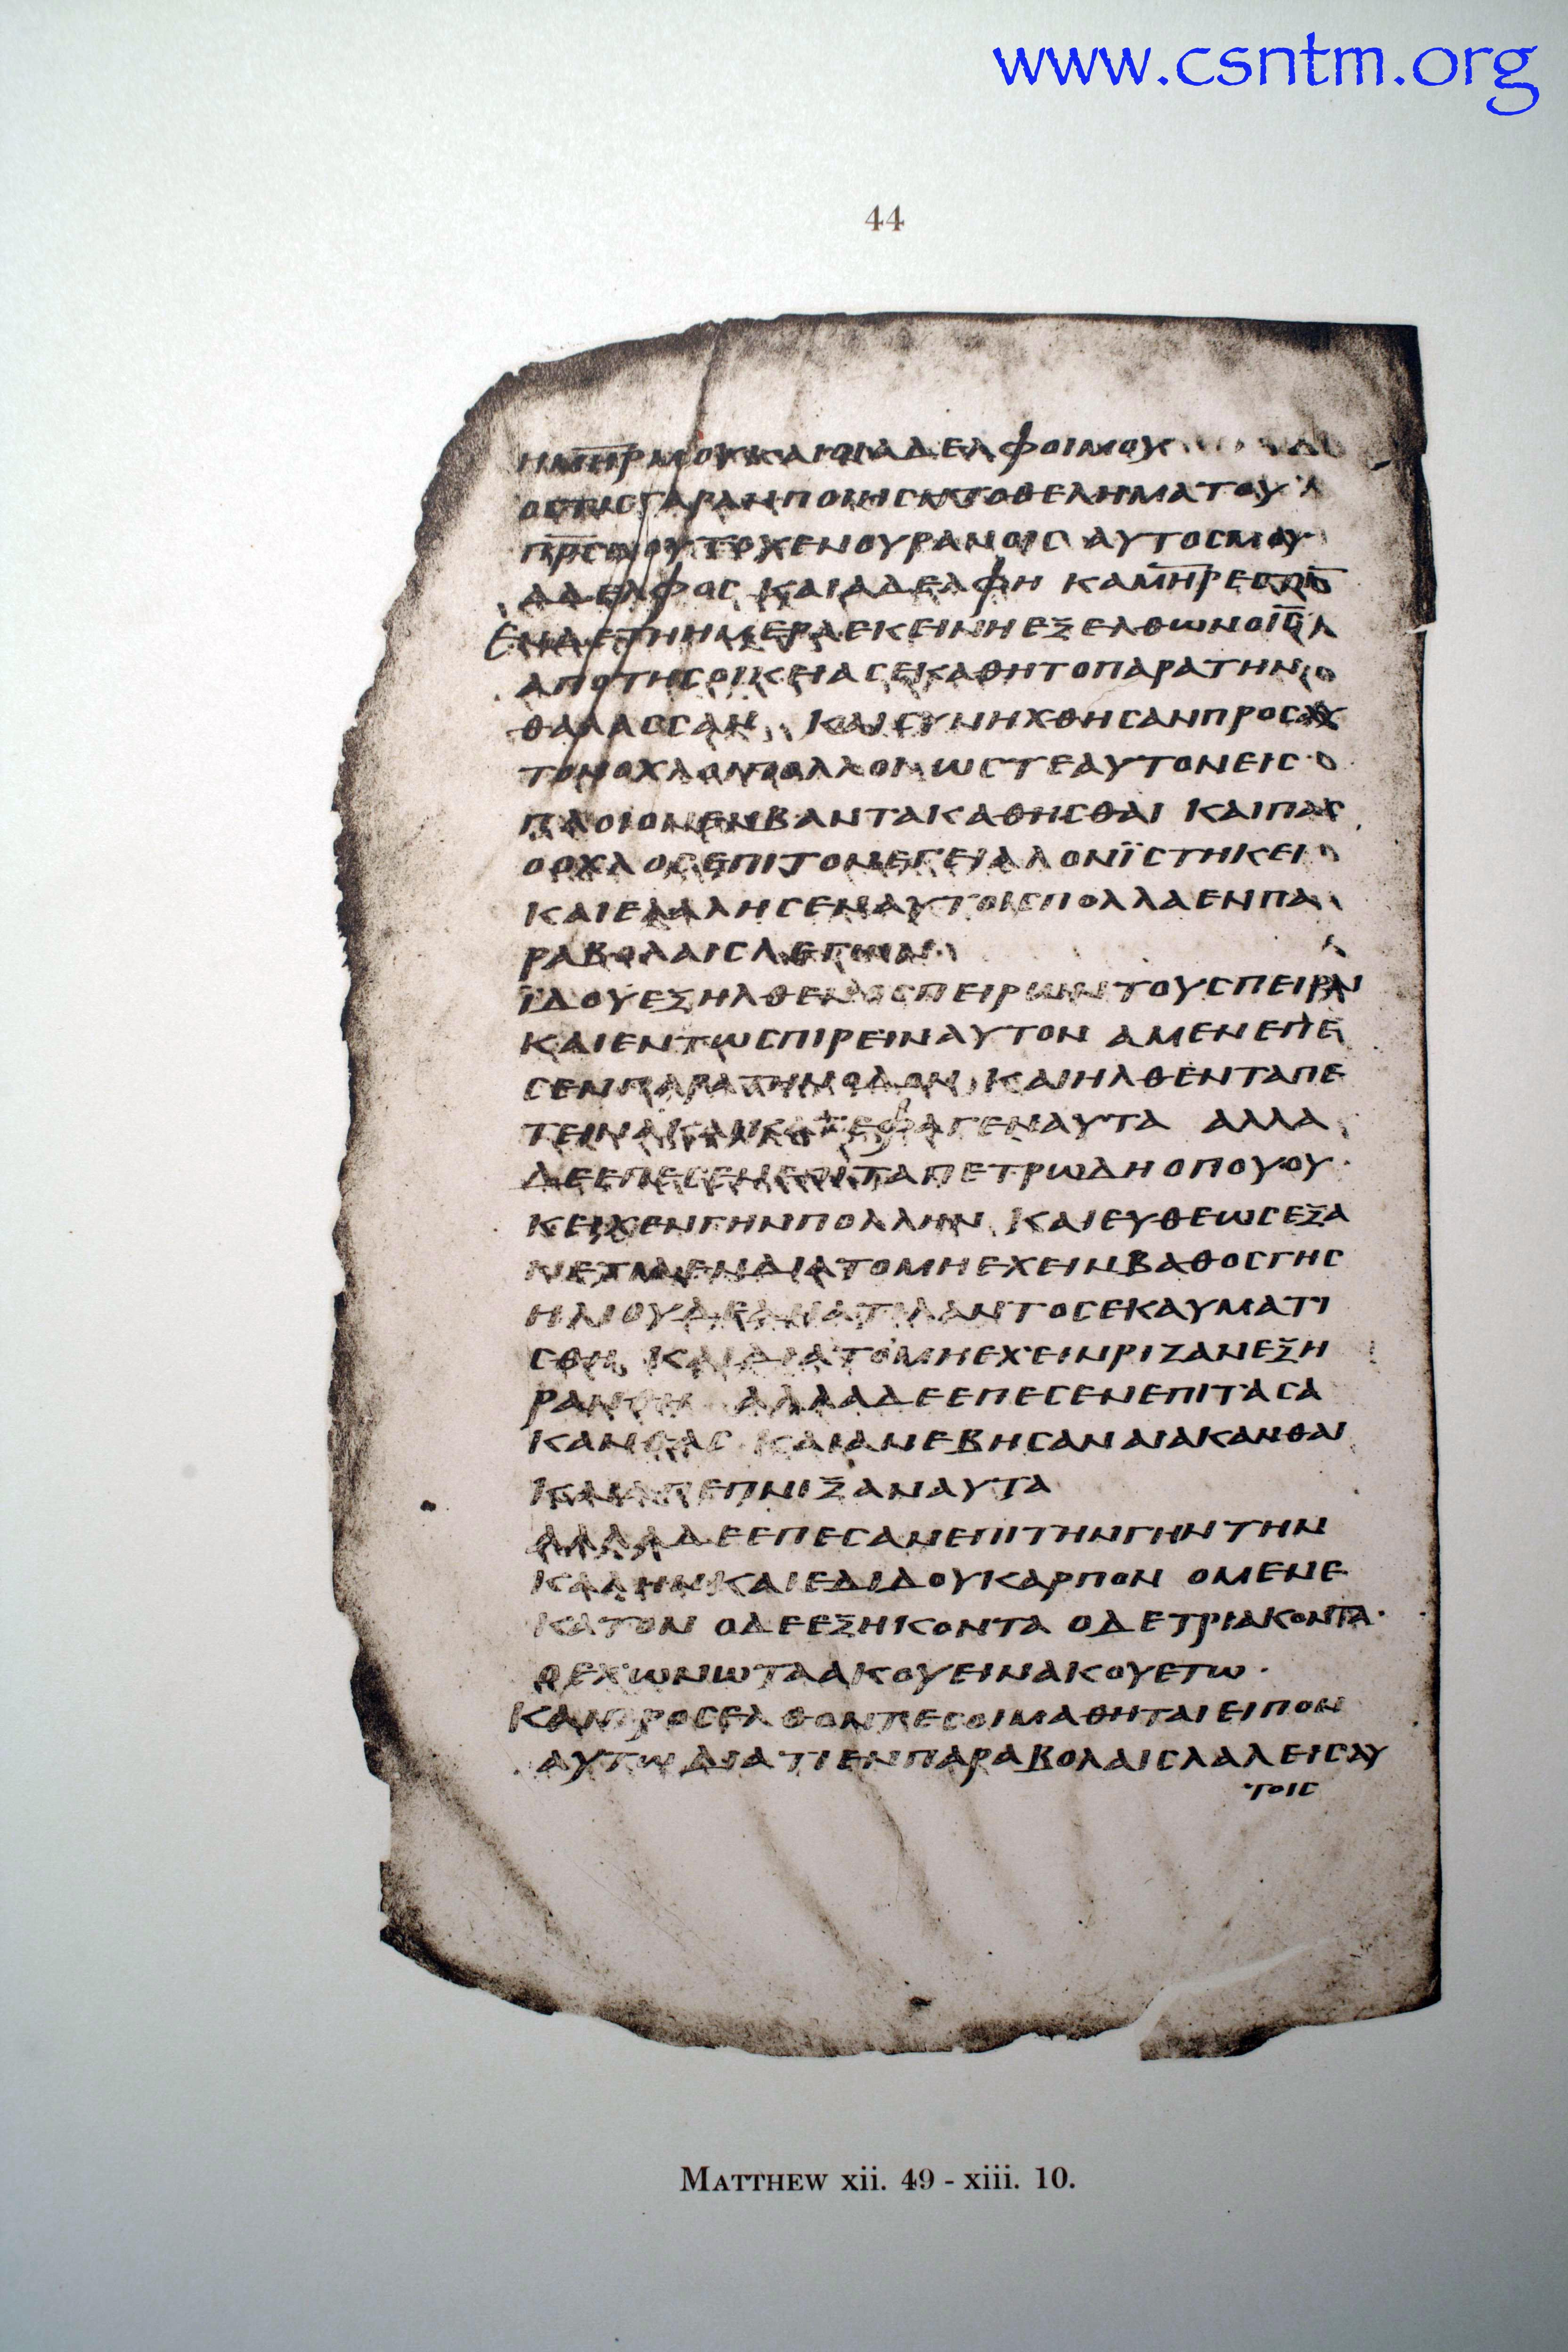 www.csntm.org
44
ΗΜΗΡΜΟΥΚΑΙΟΙΑΔΕΛΦΟΙΜΟΥ
ΟΣΤΙΣΓΑΡΑΝΠΟΙΗΣΗΤΟΘΕΛΗΜΑΤΟΥ
ΠΡΣΜΟΥΤΟΥΕΝΟΥΡΑΝΟΙΣ ΑΥΤΟΣΜΟΥ
ΑΔΕΛΦΟΣ ΚΑΙΑΔΕΛΦΗ ΚΑΜΗΡΕΣΤΙ
ΕΝΔΕΤΗΗΜΕΡΑΕΚΕΙΝΗΕΞΕΛΘΩΝΟΙΣ
ΑΠΟΤΗΣΟΙΚΕΙΑΣΕΚΑΘΗΤΟΠΑΡΑΤΗΝ
ΘΑΛΑΣΣΑΝ ΚΑΙΣΥΝΗΧΘΗΣΑΝΠΡΟΣΑΥ
ΤΟΝΟΧΛΟΙΠΟΛΛΟΙΩΣΤΕΑΥΤΟΝΕΙΣ
ΠΛΟΙΟΝΕΜΒΑΝΤΑΚΑΘΗΣΘΑΙ ΚΑΙΠΑΣ
ΟΟΧΛΟΣΕΠΙΤΟΝΕΓΕΙΑΛΟΝΪΣΤΗΚΕΙ
ΚΑΙΕΛΑΛΗΣΕΝΑΥΤΟΙΣΠΟΛΛΑΕΝΠΑ
ΡΑΒΟΛΑΙΣΛΕΓΩΝ·
ΪΔΟΥΕΞΗΛΘΕΝΟΣΠΕΙΡΩΝΤΟΥΣΠΕΙΡΑΙ
ΚΑΙΕΝΤΩΣΠΙΡΕΙΝΑΥΤΟΝ ΑΜΕΝΕΠΕ
ΣΕΝΠΑΡΑΤΗΝΟΔΟΝ ΚΑΙΗΛΘΕΝΤΑΠΕ
ΤΕΙΝΑΚΑΙΚΑΤΕΦΑΓΕΝΑΥΤΑ ΑΛΛΑ
ΔΕΕΠΕΣΕΝΕΠΙΤΑΠΕΤΡΩΔΗΟΠΟΥΟΥ·
ΚΕΙΧΕΝΓΗΝΠΟΛΛΗΝ ΚΑΙΕΥΘΕΩΣΕΞΑ
ΝΕΤΙΛΕΝΔΙΑΤΟΜΗΕΧΕΙΝΒΑΘΟΣΓΗΣ
ΗΛΙΟΥΔΕΑΝΑΤΙΛΑΝΤΟΣΕΚΑΥΜΑΤΙ
ΣΘΗ ΚΑΙΔΙΑΤΟΜΗΕΧΕΙΝΡΙΖΑΝΕΞΗ
ΡΑΝΘΗ ΑΛΛΑΔΕΕΠΕΣΕΝΕΠΙΤΑΣΑ
ΚΑΝΘΑΣ ΚΑΙΑΝΕΒΗΣΑΝΑΙΑΚΑΝΘΑΙ
ΚΑΙΑΠΕΠΝΙΞΑΝΑΥΤΑ
ΑΛΛΑΔΕΕΠΕΣΑΝΕΠΙΤΗΝΓΗΝΤΗΝ
ΚΑΛΗΝΚΑΙΕΔΙΔΟΥΚΑΡΠΟΝ ΟΜΕΝΕ
ΚΑΤΟΝ ΟΔΕΕΞΗΚΟΝΤΑ ΟΔΕΤΡΙΑΚΟΝΤΑ·
ΟΕΧΩΝΩΤΑΑΚΟΥΕΙΝΑΚΟΥΕΤΩ·
ΚΑΙΠΡΟΣΕΛΘΟΝΤΕΣΟΙΜΑΘΗΤΑΙΕΙΠΟΝ
ΑΥΤΩΔΙΑΤΙΕΝΠΑΡΑΒΟΛΑΙΣΛΑΛΕΙΣΑΥ
ΤΟΙΣ
MATTHEW xii. 49 - xiii. 10.